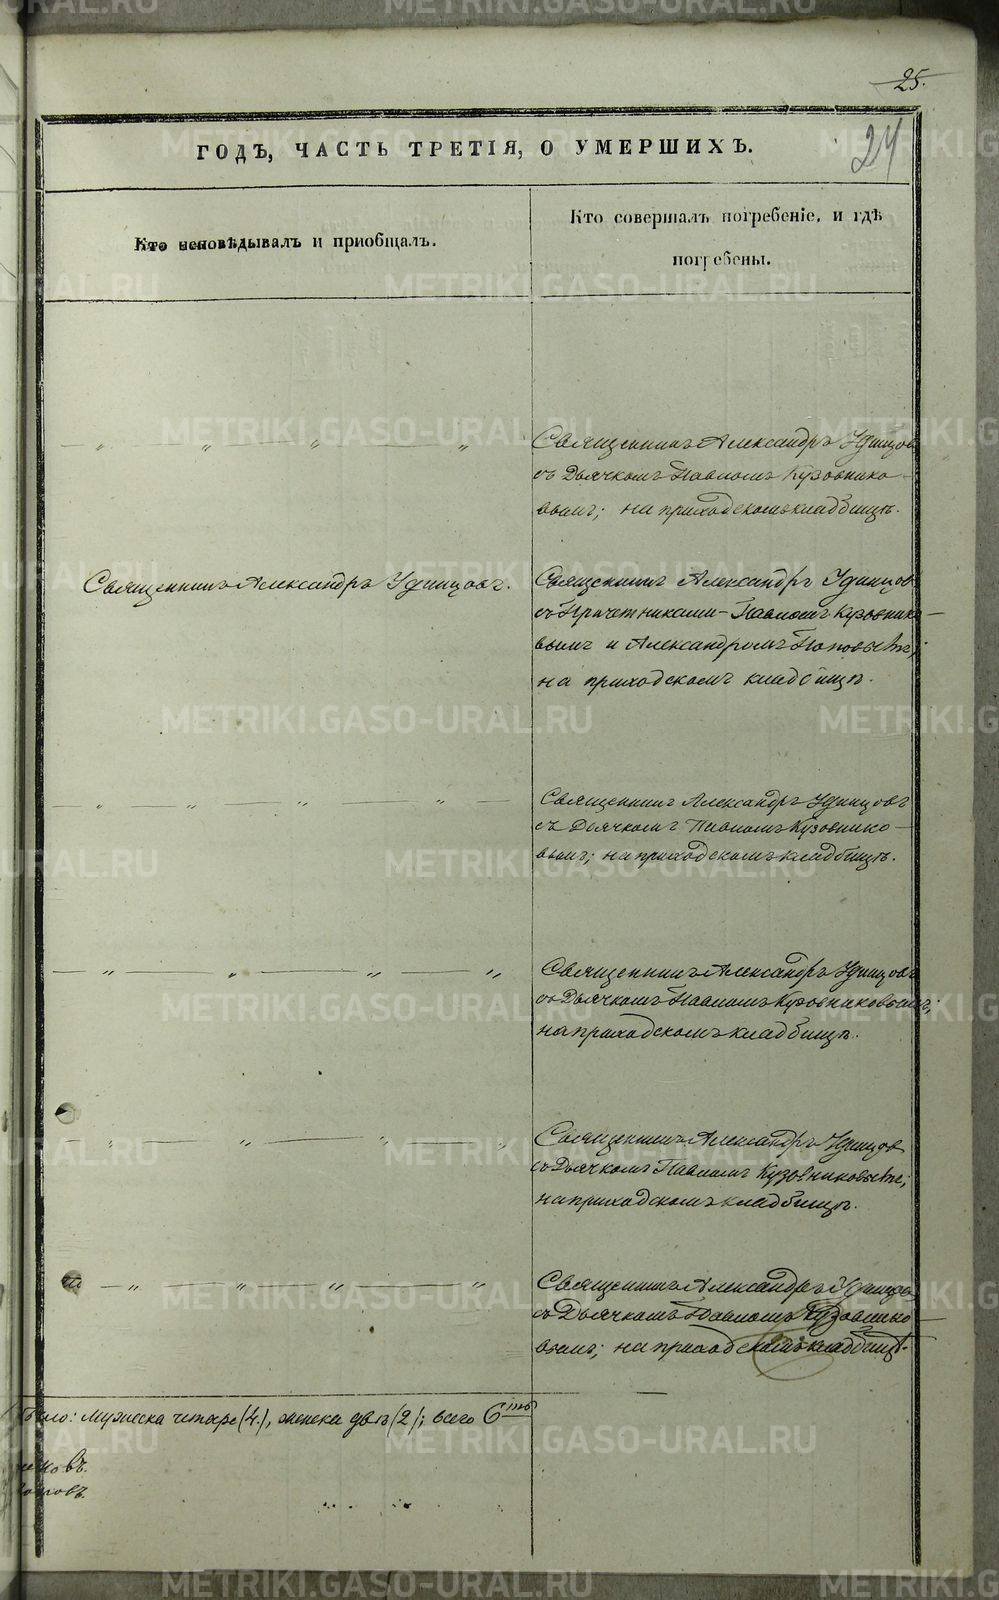 25.
24
ГОДЪ, ЧАСТЬ ТРЕТІЯ, О УМЕРШИХЪ.
Кто исповѣдывалъ и пріобщалъ.
Кто совершалъ погребеніе, и гдѣ
погребены.
— „ „ „ „
Священникъ Александръ Удинцовъ
съ Дьячкомъ Павломъ Кузовнико-
вымъ; на приходскомъ кладбищѣ.
Священникъ Александръ Удинцовъ.
Священникъ Александръ Удинцовъ
съ Причетниками – Павломъ Кузовнико-
вымъ и Александромъ Поповымъ;
на приходскомъ кладбищѣ.
— „ — „ — „ — „ —
Священникъ Александръ Удинцовъ
съ Дьячкомъ Павломъ Кузовнико-
вымъ; на приходскомъ кладбищѣ.
— „ — „ — „ — „
Священникъ Александръ Удинцовъ
съ Дьячкомъ Павломъ Кузовниковымъ;
на приходскомъ кладбищѣ.
— „ — „ — „ — „
Священникъ Александръ Удинцовъ
съ Дьячкомъ Павломъ Кузовниковымъ;
на приходскомъ кладбищѣ.
— „ — „ — „ — „
Священникъ Александръ Удинцовъ
съ Дьячкомъ Павломъ Кузовнико-
вымъ; на приходскомъ кладбищѣ.
было: мужеска четыре (4.), женска двѣ (2); всего 6ть
никовъ.
METRIKI.GASO-URAL.RU